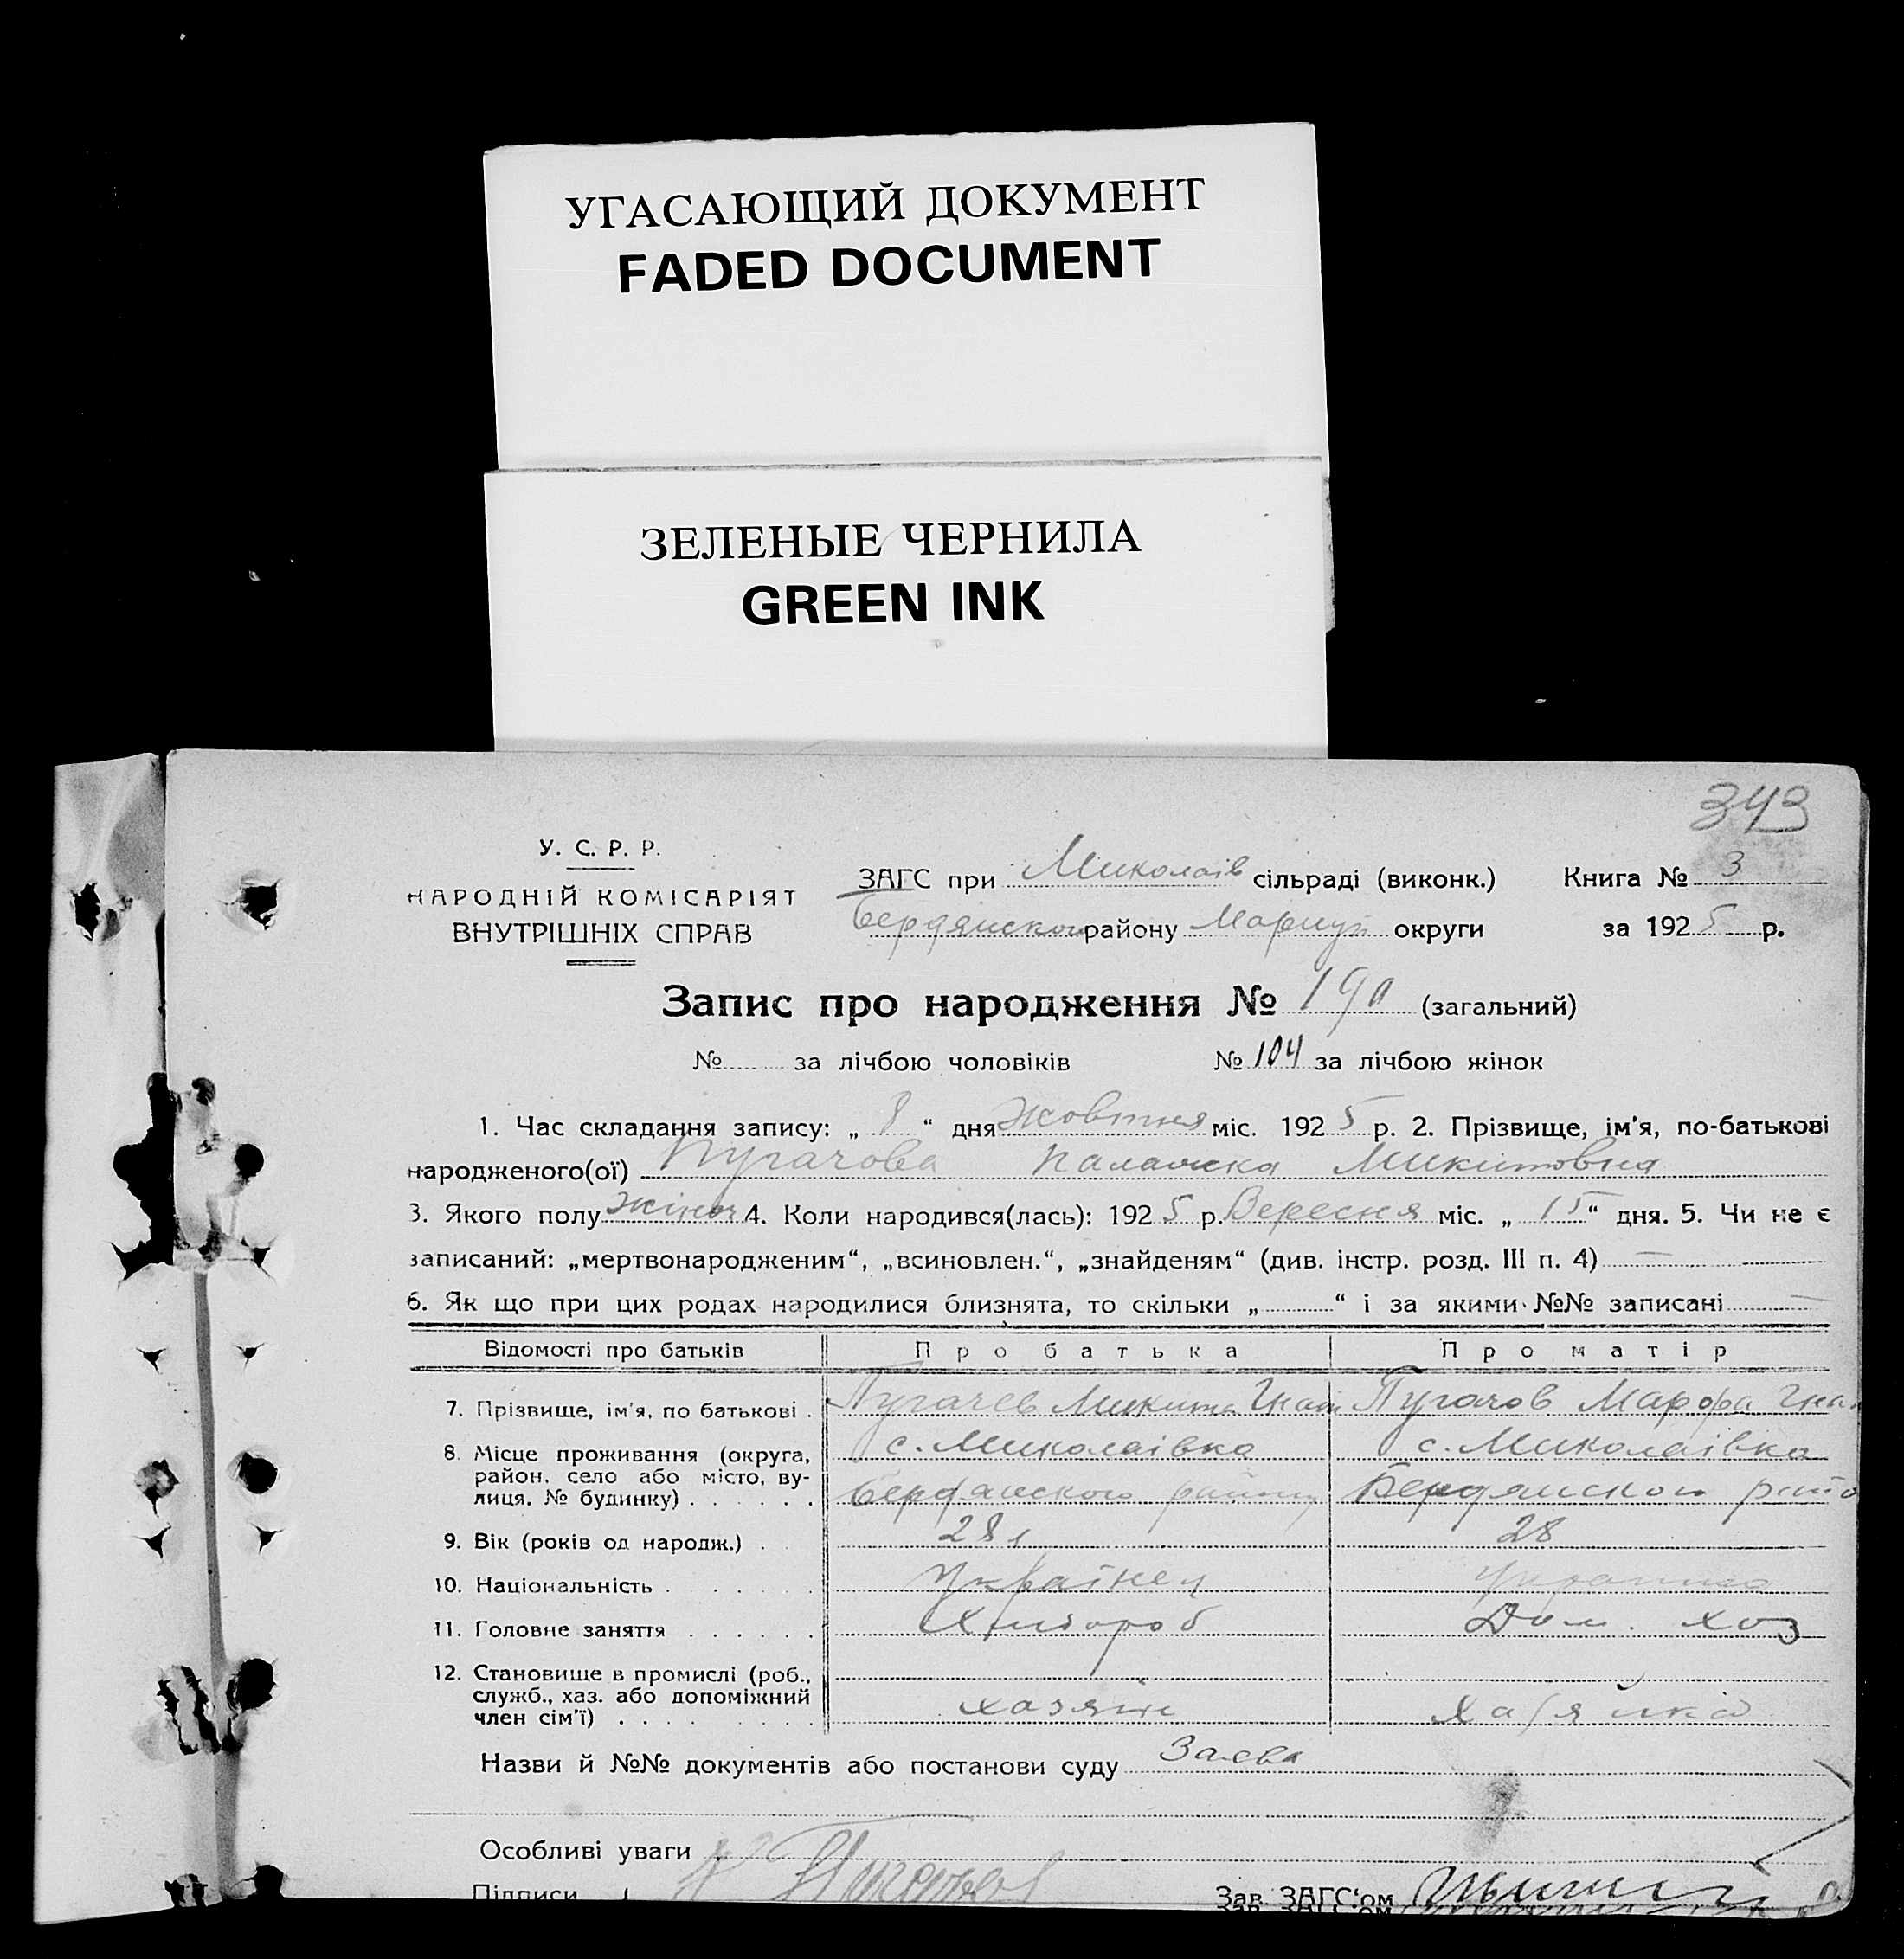 УГАСАЮЩИЙ ДОКУМЕНТ
FADED DOCUMENT
ЗЕЛЕНЫЕ ЧЕРНИЛА
GREEN INK
343
У. С. Р. Р.
НАРОДНІЙ КОМІСАРІЯТ
ВНУТРІШНІХ СПРАВ
ЗАГС при Миколаів сільраді (виконк.) Книга № 3
Бердянського району Мариуп округи за 1925 р.
Запис про народження № 190 (загальний)
№ за лічбою чоловіків № 104 за лічбою жінок
1. Час складання запису: „ 8 “ дня Жовтня міс. 1925 р. 2. Прізвище, ім'я, по-батькові
народженого(ої) Пугачова Палажка Микитовна
3. Якого полу жіноч 4. Коли народився(лась): 1925 р. Вересня міс. „ 15 “ дня. 5. Чи не є
записаний: „мертвонародженим“, „всиновлен.“, „знайденям“ (див. інстр. розд. III п. 4) —
6. Як що при цих родах народилися близнята, то скільки „ “ і за якими №№ записані —
Відомості про батьків Про батька Про матір
7. Прізвище, ім'я, по батькові . Пугачев Микита Гнат Пугачов Марфа Гна
8. Місце проживання (округа, с. Миколаівка с. Миколаівка
район, село або місто, ву-
лиця, № будинку) . . . . . . Бердянского району Бердянского
9. Вік (років од народж.) . 28 28
10. Національність . . . . . . Українец
11. Головне заняття . . . . . . Хлібороб Дом. хоз
12. Становище в промислі (роб.,
служб., хаз. або допоміжний
член сім'ї) . . . . . . . . хазяїн Хазяйка
Назви й №№ документів або постанови суду Заява
Особливі уваги
Підписи
Зав. ЗАГС'ом
Зав. ЗАГС'ом